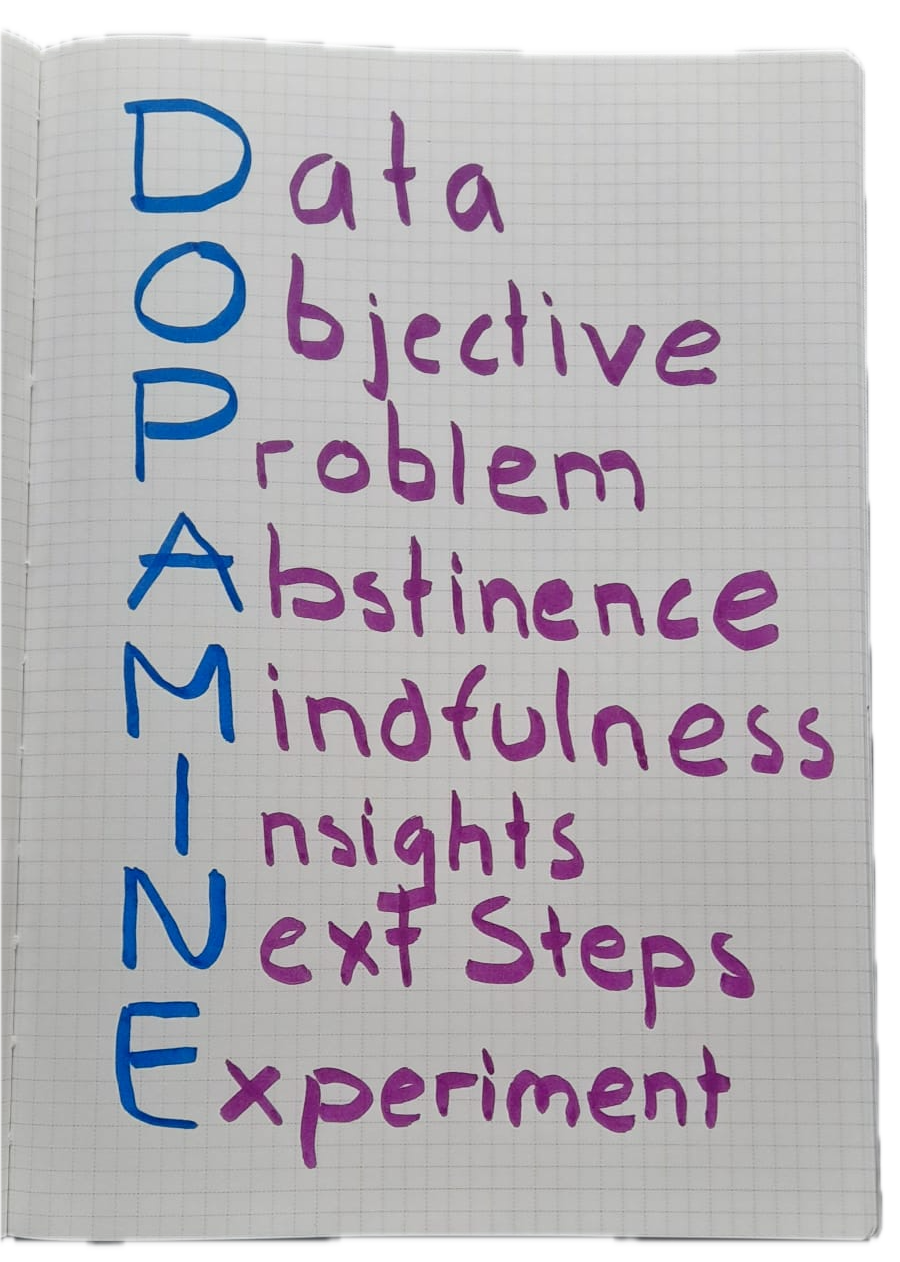 Data
Objective
Problem
Abstinence
Mindfulness
Insights
Next Steps
Experiment